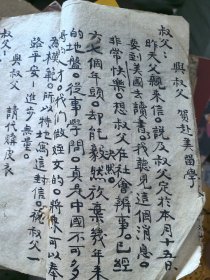 與叔父 賀赴美留學
叔父：
昨天父親來信。說及叔父定於本月十五日
要到美國去讀書。我聽見這個消息。
非常快樂。想叔父在社會辦事。已經
六七個年頭。却能毅然決然放棄幾年來
的地盤。從事學問。真是中國不可多
得之才。我們做姪女的。將來可以奉
為模範。所以特地寫這封信。祝叔父一
路平安—進步無量。
與叔父 請代購皮衣
叔父：